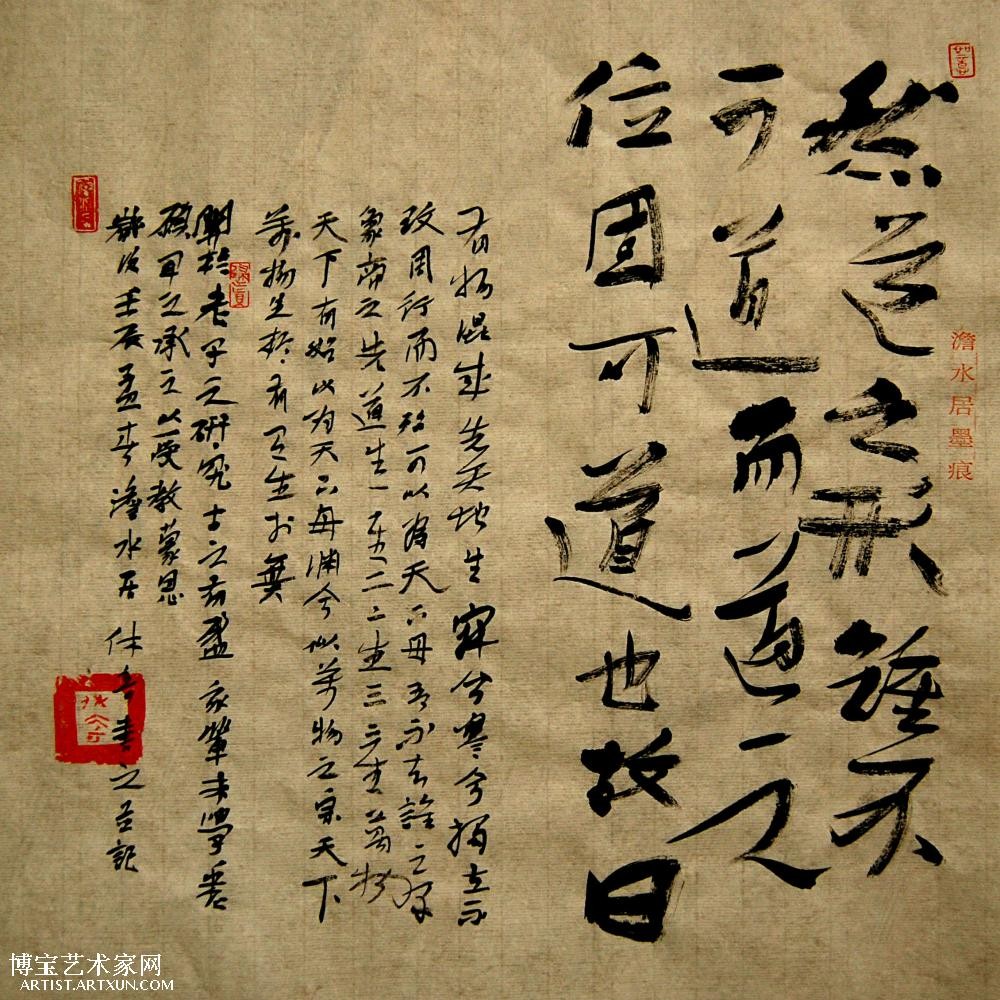 然道之形虽不
可道而道之
位固可道也故曰
澹水居墨痕
有物混成先天地生寂兮寥兮獨立不
改周行而不殆可以為天下母吾不知誰之子
象帝之先道生一一生二二生三三生萬物
天下有始以為天下母淵兮似萬物之宗天下
萬物生於有有生於無
關於老子之研究士之有盈 家輩未學
碩甲之承之以受教蒙恩
歲次壬辰孟春澹水居 書之并記
博宝艺术家网
ARTIST.ARTXUN.COM